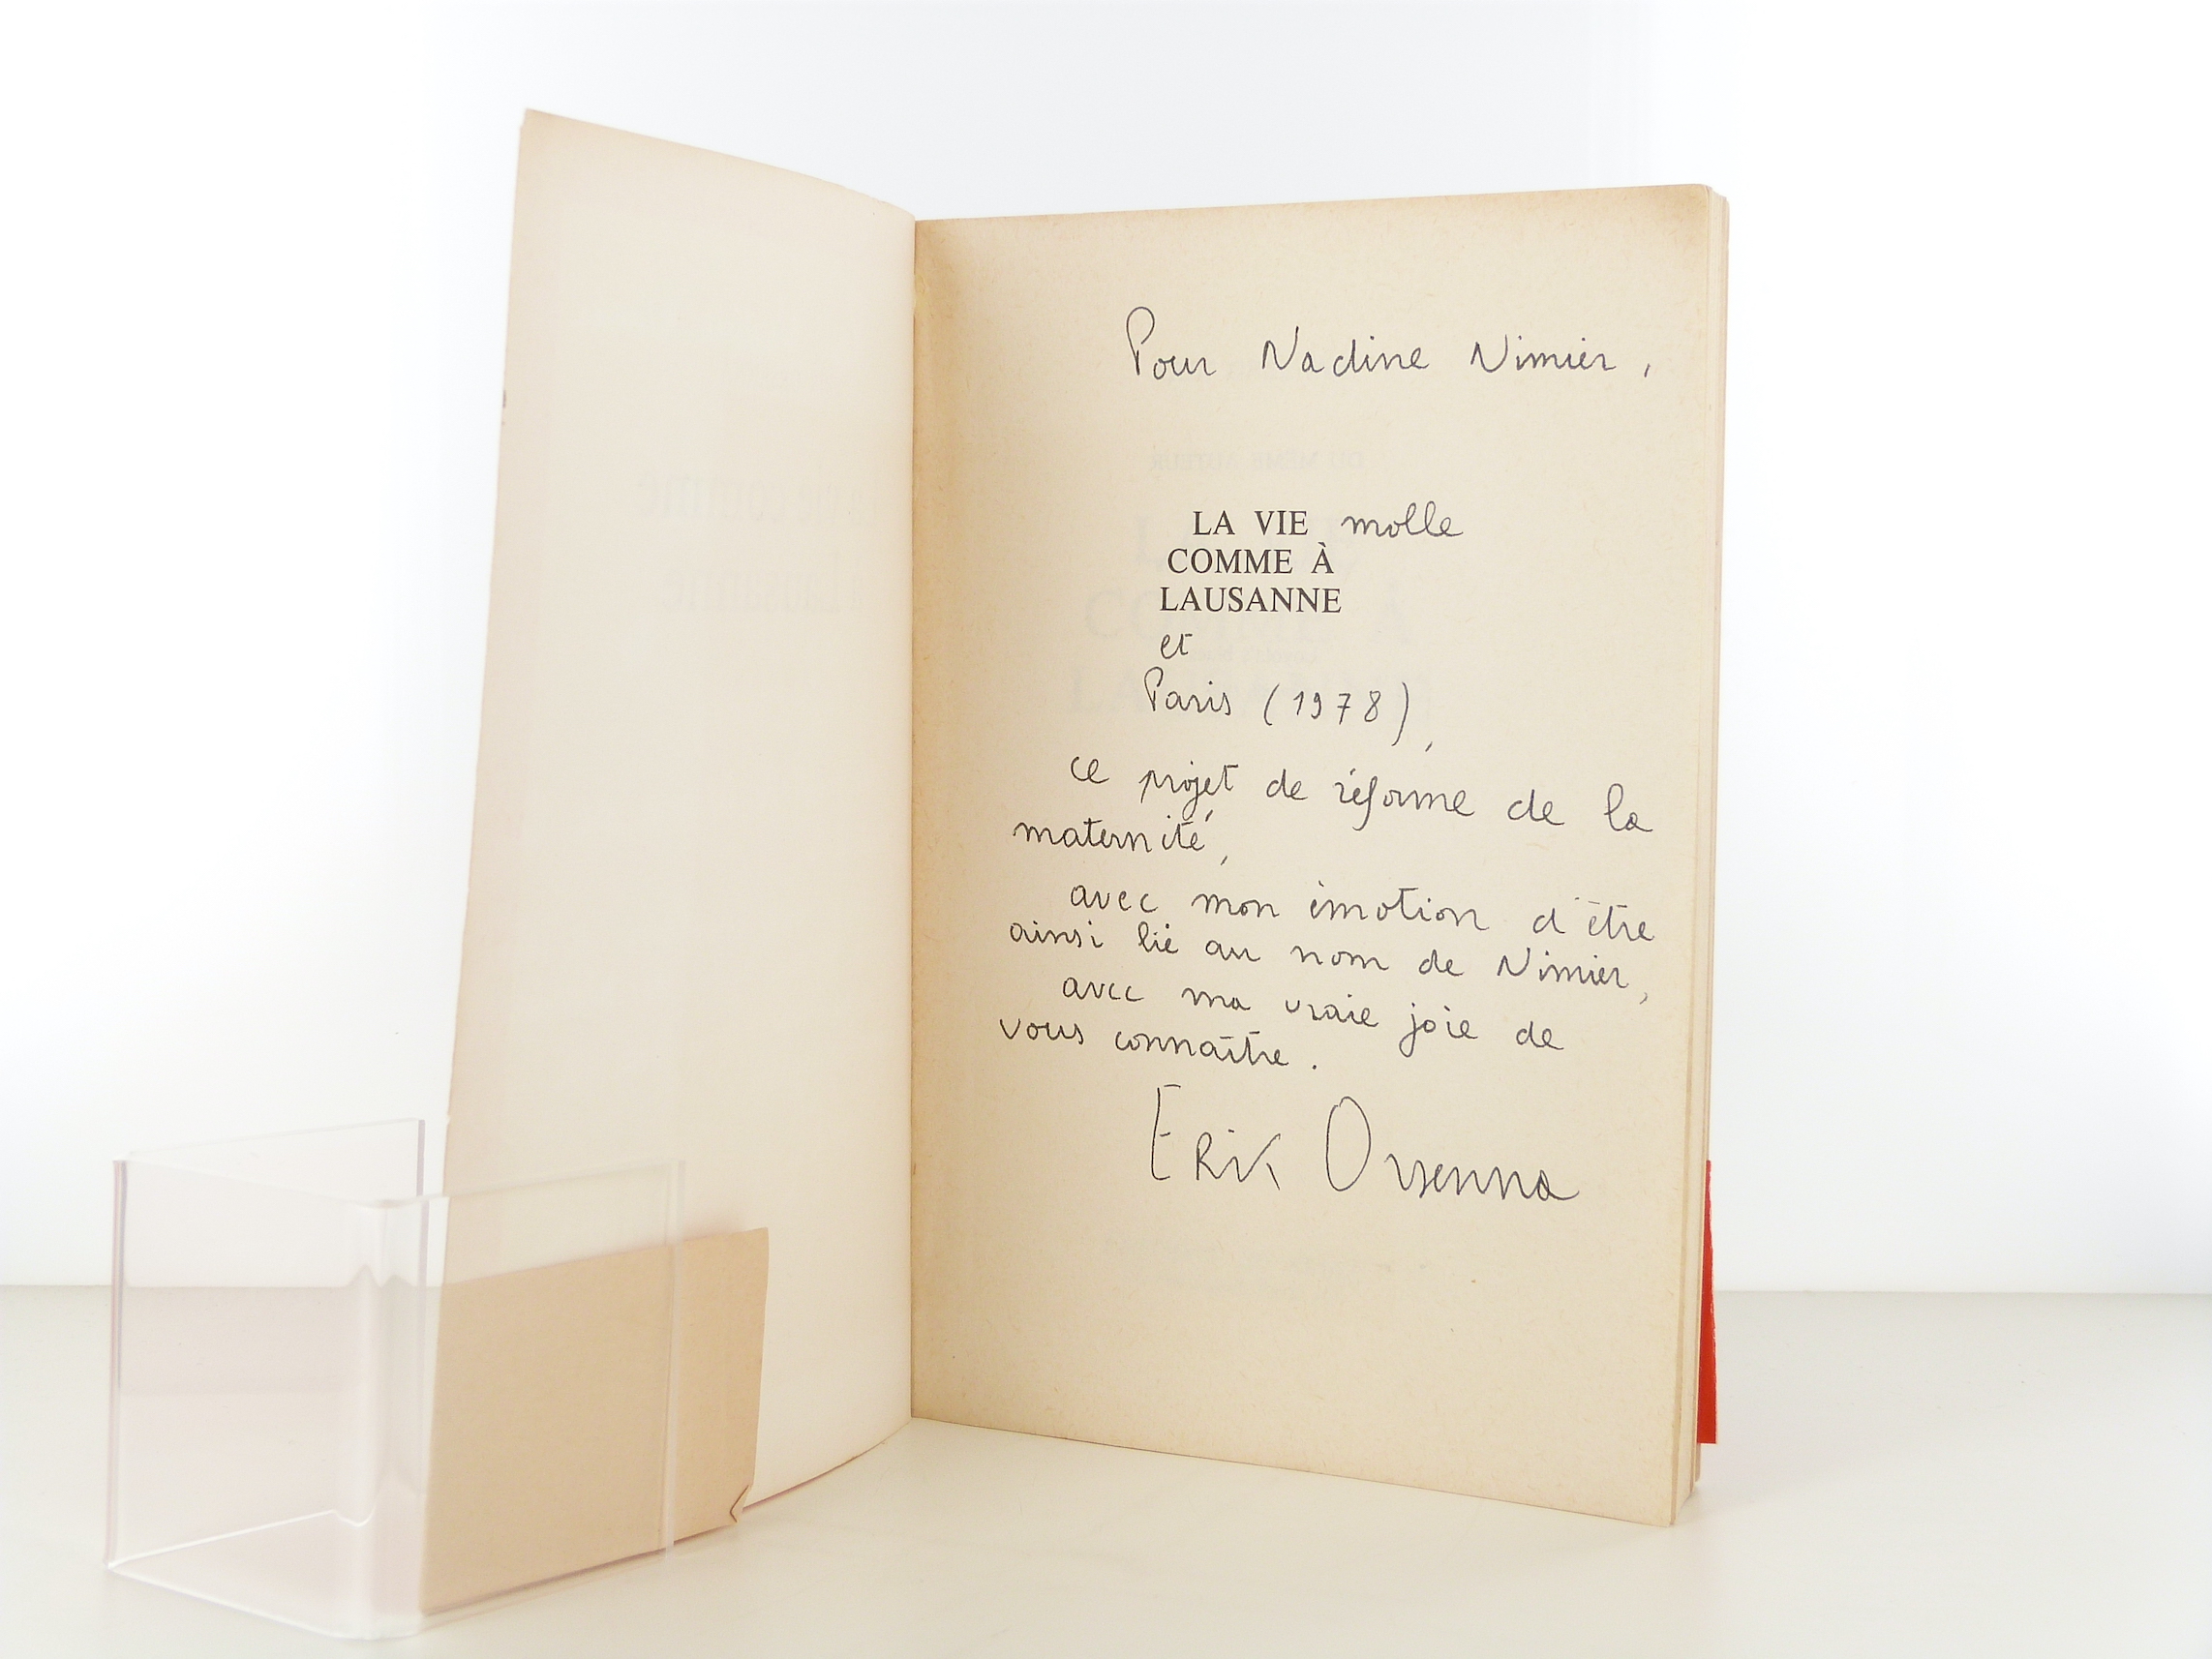 Pour Nadine Nimier,
LA VIE molle
COMME À
LAUSANNE
et
Paris (1978),
ce projet de réforme de la
maternité,
avec mon émotion d'être
ainsi lié au nom de Nimier,
avec ma vraie joie de
vous connaître.
Erik Orsenna